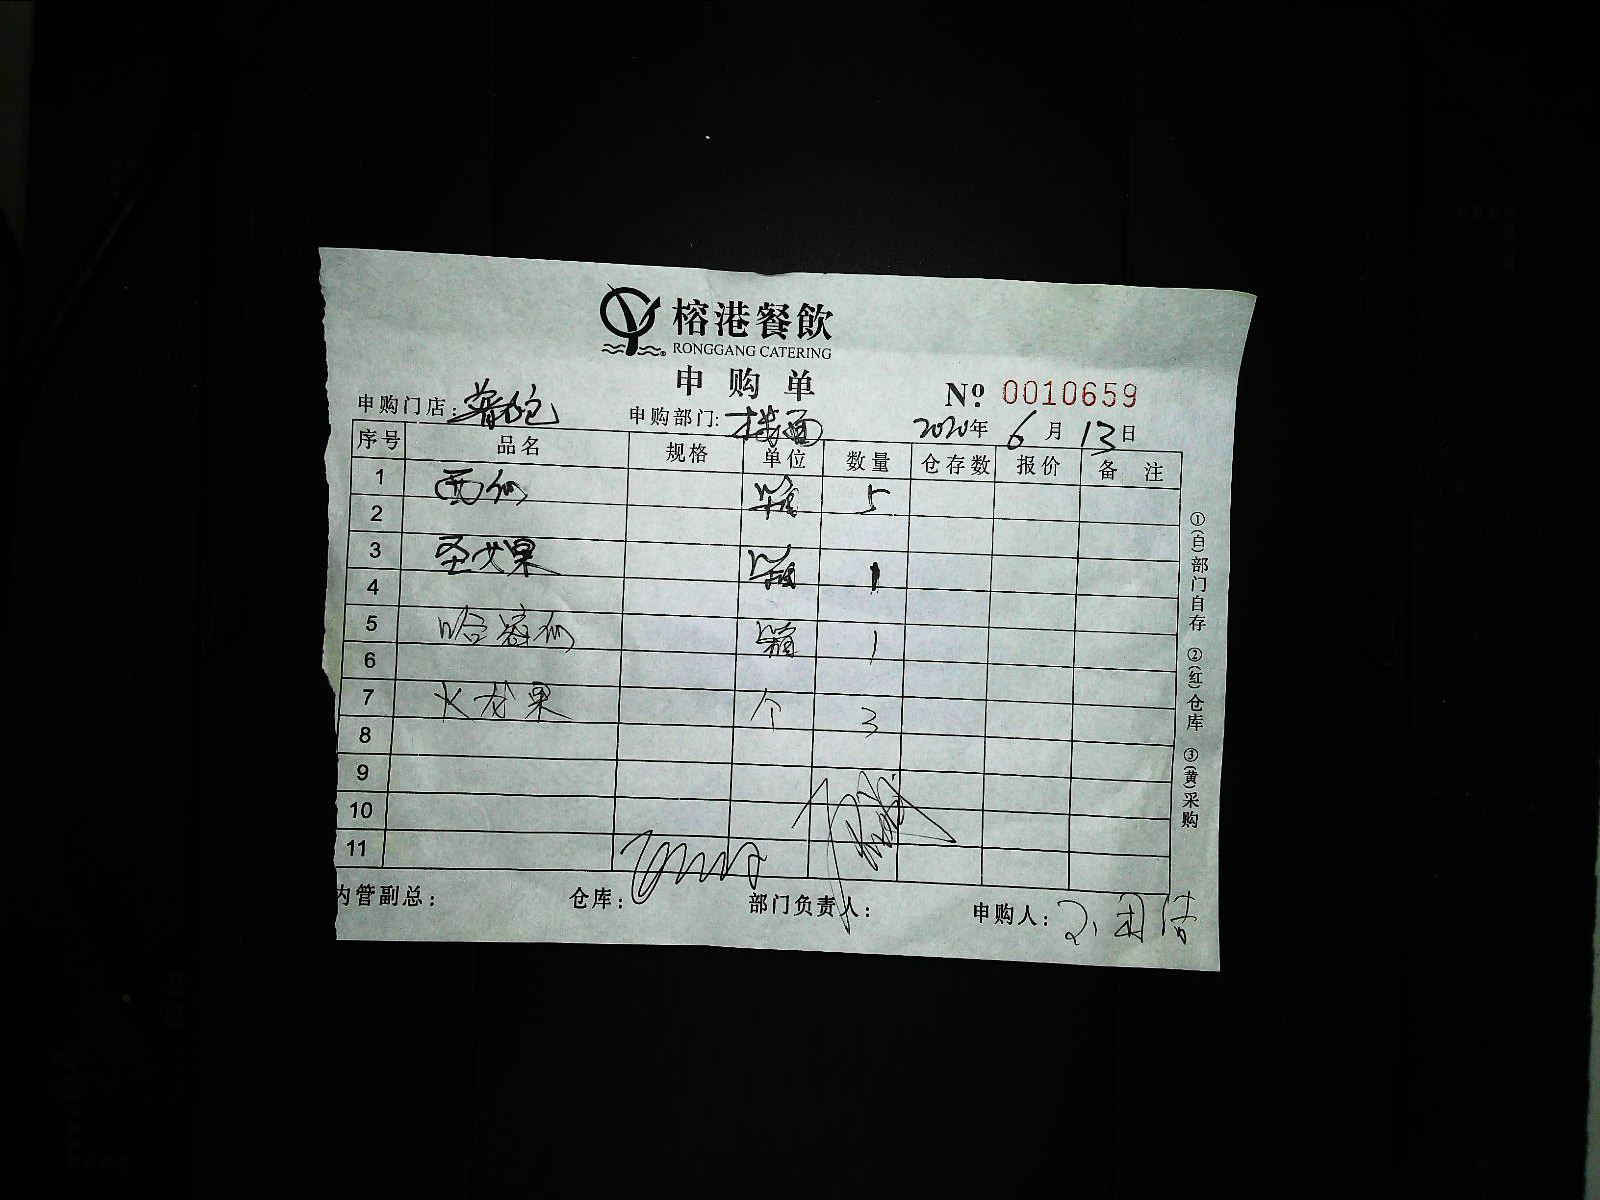 榕港餐飲
RONGGANG CATERING
申购单
№ 0010659
申购门店: 申购部门: 楼面 2020年 6月 13日
序号 品名 规格 单位 数量 仓存数 报价 备注
1 西瓜 箱 5
2
3 圣女果 箱 1
4
5 哈密瓜 箱 1
6
7 火龙果 个 3
8
9
10
11
内管副总: 仓库: 部门负责人: 申购人:
①(白)部门自存 ②(红)仓库 ③(黄)采购